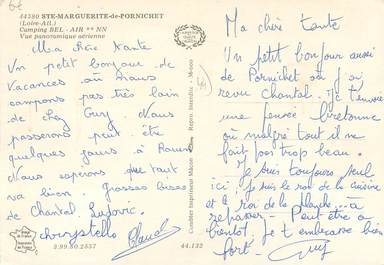 44380 STE-MARGUERITE-de-PORNICHET
(Loire-Atl.)
Camping BEL - AIR ** NN
Vue panoramique aérienne
Ma chère Tante
Un petit bonjour de
vacances où nous
campons pas très loin
de chez Guy Nous
passerons peut être
quelques jours à Rouen
Nous espérons que tout
va bien. Grosses Bises
de Chantal Ludovic
chrystello
3.99.80.2557
44.132
Combier Imprimeur Mâcon
Ma chère tante
Un petit bonjour aussi
de Pornichet où j'ai
revu Chantal. Je t'envoie
une pensée bretonne
où malgré tout il ne
fait pas trop beau.
Je suis toujours seul
ici, je suis le roi de la cuisine
et le roi de la planche... à
repasser - Peut être à
bientôt, je t'embrasse bien
fort - Guy